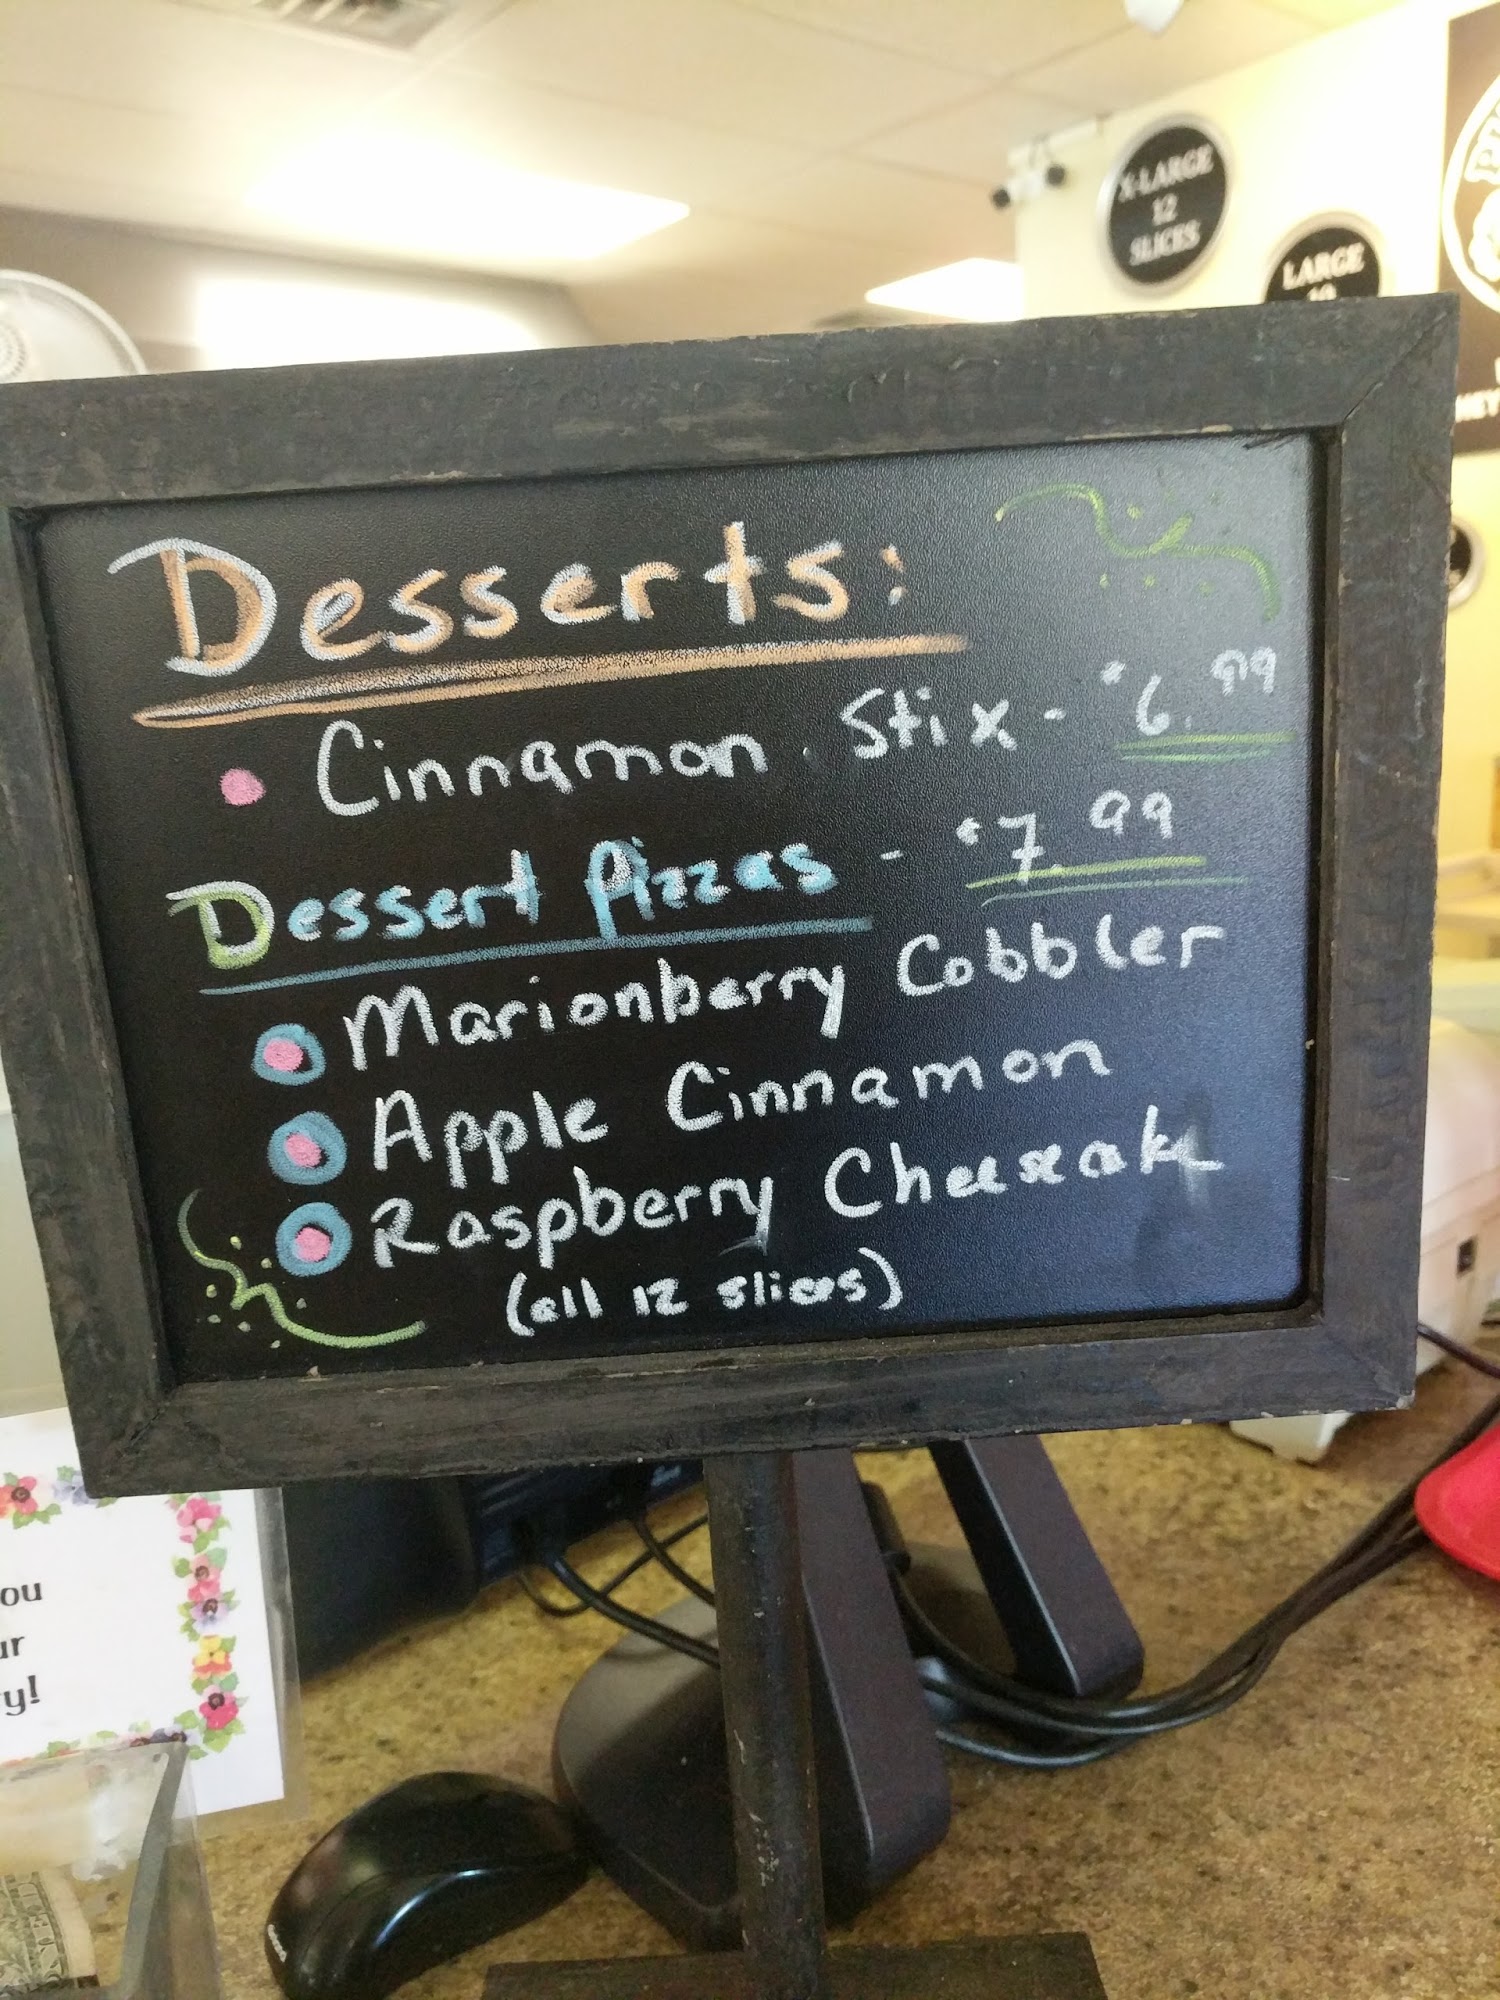 X-LARGE
12
SLICES
LARGE
Desserts:
• Cinnamon Stix - $6.99
Dessert Pizzas - $7.99
Marionberry Cobbler
Apple Cinnamon
Raspberry Cheeseake
(all 12 slices)